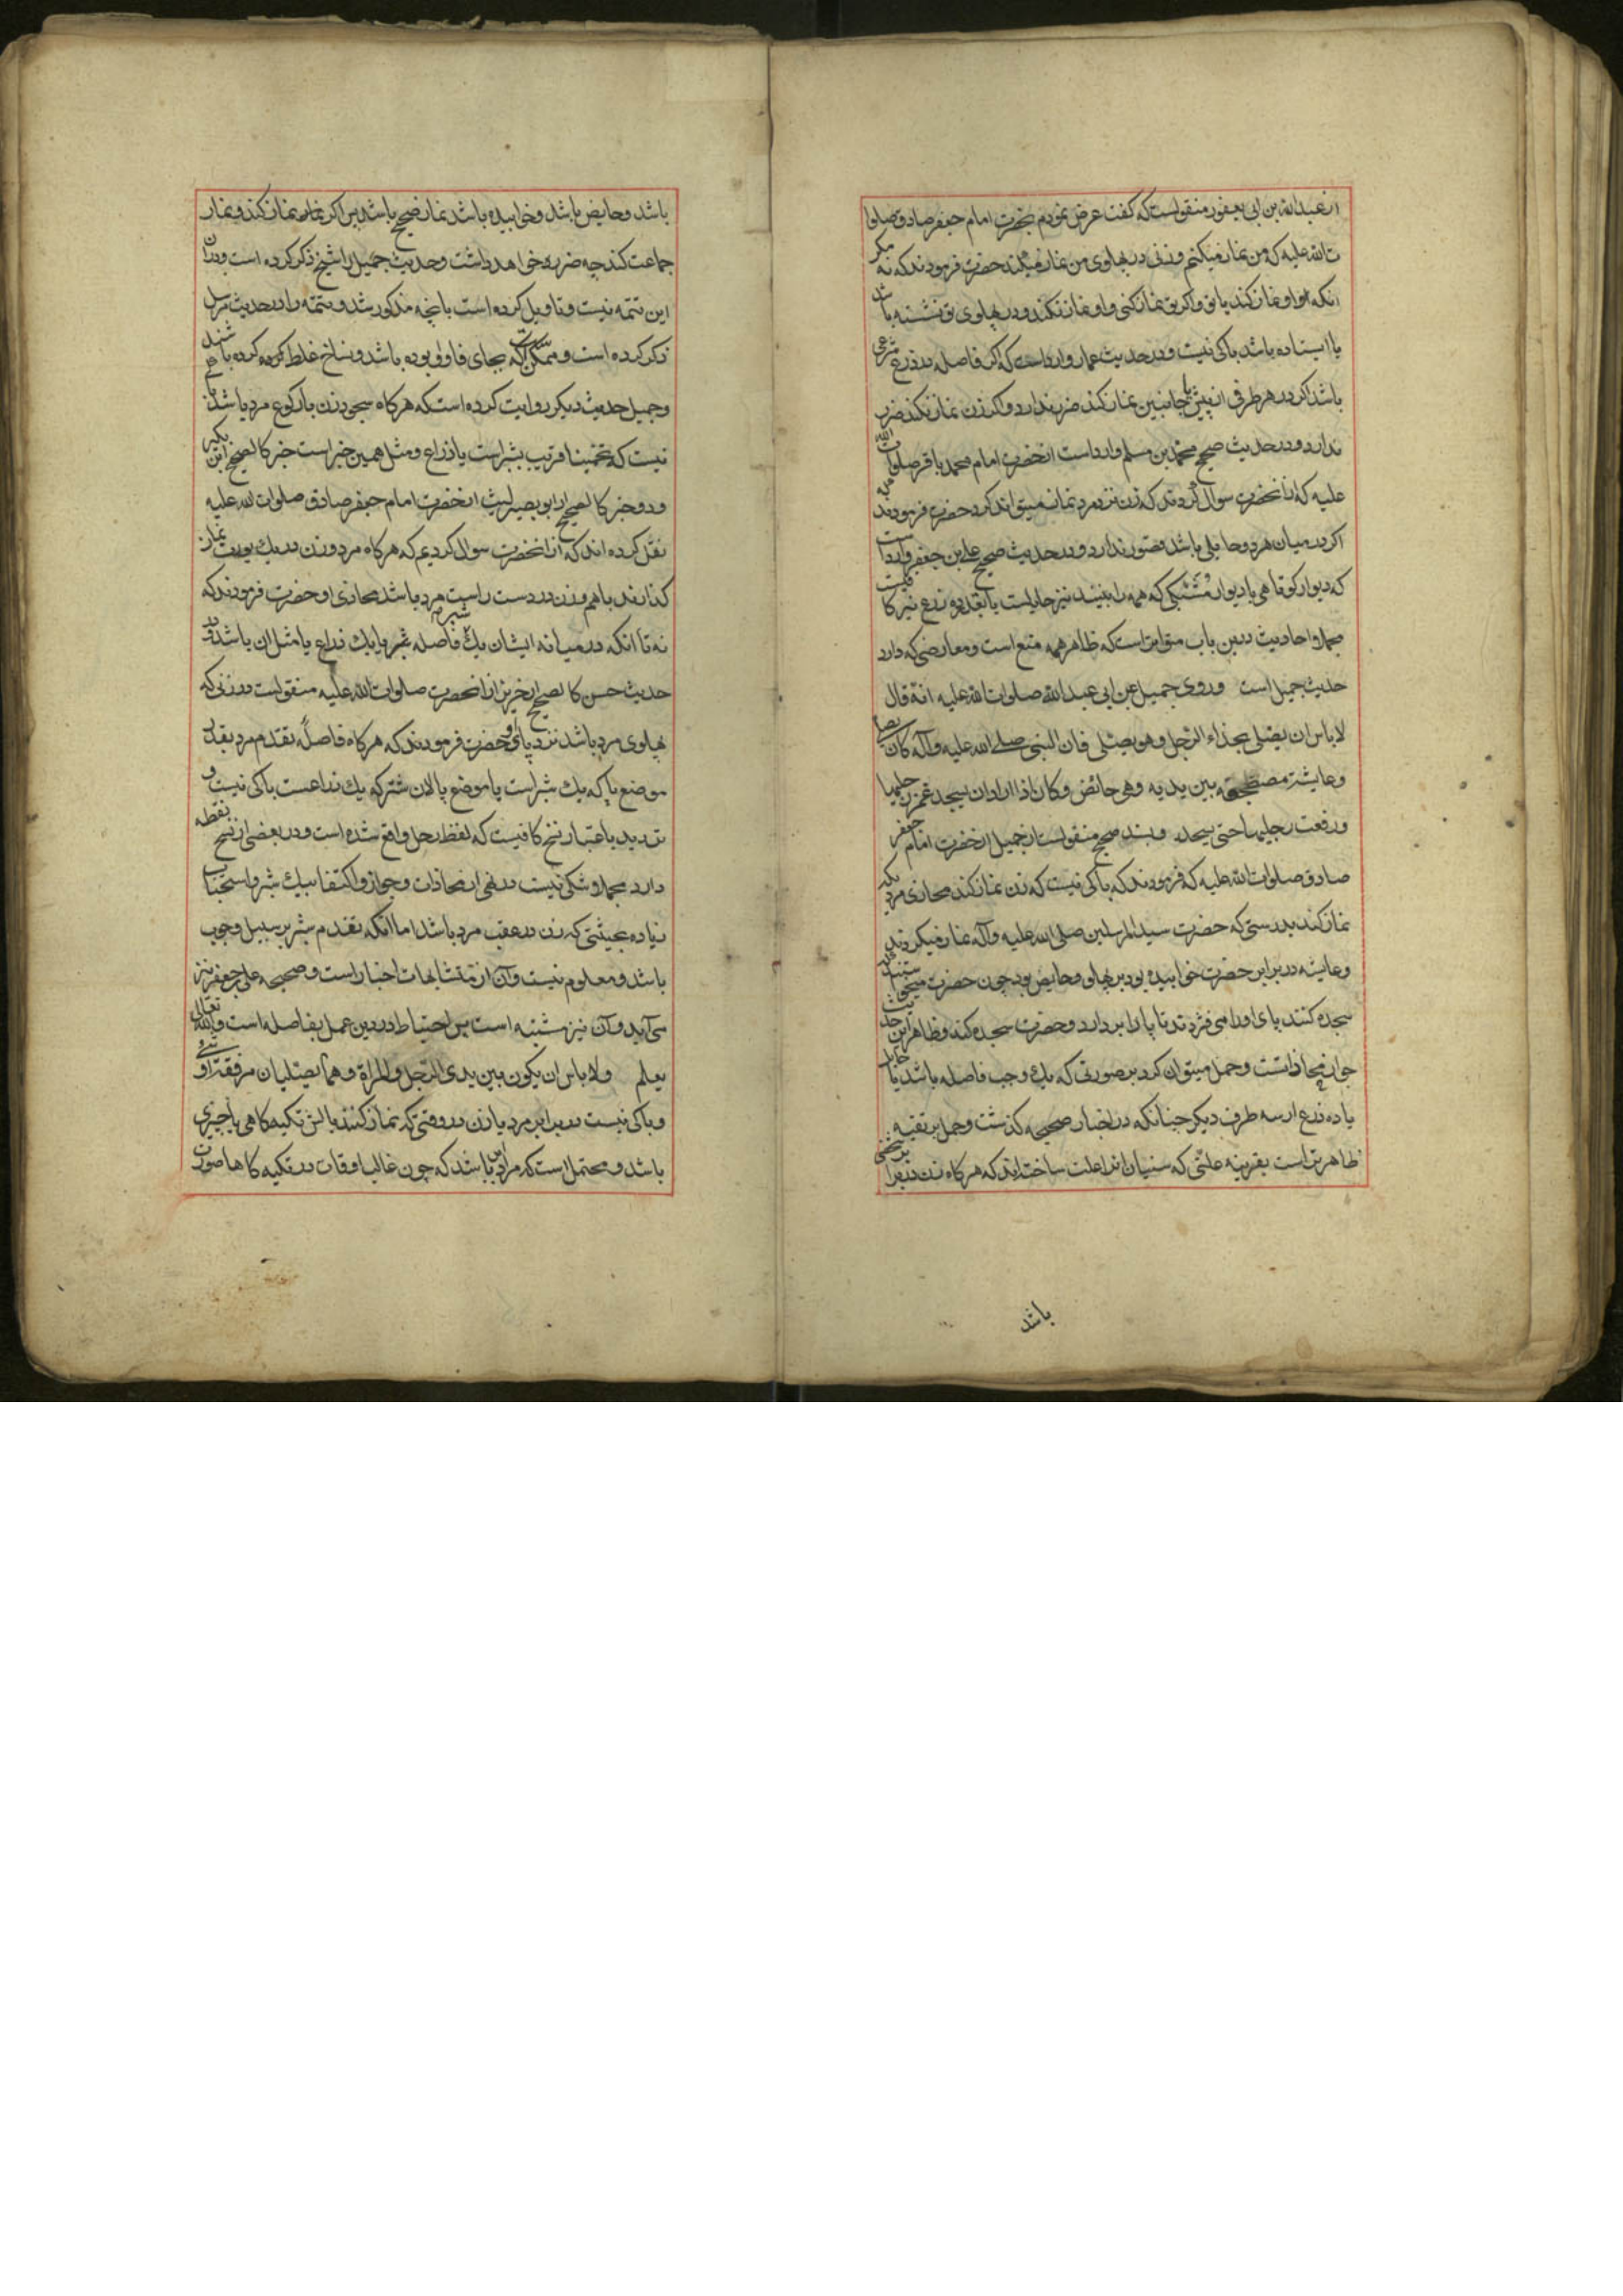 از عبدالله بن ابی یعفور منقولست که گفت عرض نمودم بحضرت امام جعفر صادق صلوا
ت الله علیه که من نماز میکنم و زنی در پهلوی من نماز میکند حضرت فرمودند که نه مگر
انکه او نماز کند یا تو و اگر تو نماز کنی و او نماز نکند و در پهلوی تو نشسته باشد
یا ایستاده باشد باکی نیست و در حدیث عمار وارد است که اگر فاصله ده ذرع شرعی
باشد اگر در هر طرفی از پیش یا جانبین نماز کند ضرر ندارد و اگر زن نماز نکند ضرر
ندارد و در حدیث صحیح محمد بن مسلم وارد است از حضرت امام محمد باقر صلوات الله
علیه که از انحضرت سوال کردند که زن نزد مرد نماز میتواند کرد حضرت فرمودند که
اگر در میان هر دو حایلی باشد قصور ندارد و در حدیث صحیح علی بن جعفر وارد است
که دیوار کوتاهی یا دیوار مشبکی که همه را بینند نیز حایلست
مجملا احادیث درین باب متواتر است که ظاهر همه منع است و معارضی که دارد
حدیث جمیل است و روی جمیل عن ابی عبد الله صلوات الله علیه انه قال
لا باس ان یصلی بحذاء الرجل و هو یصلی فان النبی صلی الله علیه و آله کان یصلی
و عایشة مضطجعة بین یدیه و هی حائض و کان اذا اراد ان یسجد غمز رجلیها
و رفعت رجلیها حتی یسجد و بسند صحیح منقولست از جمیل از حضرت امام جعفر
صادق صلوات الله علیه که فرمودند که باکی نیست که زن نماز کند محاذی مردی که
نماز کند بدرستی که حضرت سید المرسلین صلی الله علیه و آله نماز میکردند
و عایشه در برابر حضرت خوابیده بود بر پهلو و حایض بود چون حضرت میخواستند که
سجده کنند پای او را می فشردند تا پا را بردارد و حضرت سجده کند و ظاهر این حدیث
جواز محاذاتست و حمل میتوان کرد بر صورتی که یک وجب فاصله باشد یا حایل
یا ده ذرع از سه طرف دیگر چنانکه در اخبار صحیحه گذشت و حمل بر تقیه
ظاهرتر است بقرینه علتی که سنیان انرا علت ساخته اند که هر گاه زن در برابر
باشد
باشد و حایض باشد و خوابیده باشد نماز صحیح باشد پس اگر نماز کند و نماز
جماعت کند چه ضرر خواهد داشت و حدیث جمیل را شیخ ذکر کرده است و در ان
این تتمه نیست و تاویل کرده است بانچه مذکور شد و تتمه را در حدیث مرسل
ذکر کرده است و ممکن است که بجای فا واو بوده باشد و نساخ غلط کرده باشند
و جمیل حدیث دیگر روایت کرده است که هر گاه سجود زن با رکوع مرد باشد باکی
نیست که تخمینا قریب بشبر است یا ذراع و مثل همین خبر است خبر کالصحیح ابن بکیر
و دو خبر کالصحیح از ابو بصیر لیث از حضرت امام جعفر صادق صلوات الله علیه
نقل کرده اند که از انحضرت سوال کردیم که هر گاه مرد و زن در یک بیوت نماز
گذارند با هم و زن در دست راست مرد باشد محاذی او حضرت فرمودند که
نه تا آنکه در میانه ایشان یک شبر فاصله باشد یا یک ذراع یا مثل ان باشد و در
حدیث حسن کالصحیح از حریز از انحضرت صلوات الله علیه منقولست در زنی که
پهلوی مرد باشد نزد پای او حضرت فرمودند که هر گاه فاصله تقدم مرد بقدر
موضع پا که یک شبر است یا موضع پالان شتر که یک ذراعست باکی نیست و
تردید باعتبار نسخ کافیست که لفظ رحل واقع شده است و در بعضی از نسخ نقطه
دارد مجملا شکی نیست در نفی از محاذات و جواز و اکتفا بیک شبر و استحباب
زیاده بحیثیتی که زن در عقب مرد باشد اما انکه تقدم شبر بر سبیل وجوب
باشد و معلوم نیست و آن از متشابهات اخبار است و صحیحه علی جعفر نیز
می آید و آن نیز مشتبه است پس احتیاط در دین عمل بفاصله است و الله تعالی
یعلم و لا باس ان یکون بین یدی الرجل و المراة و هما یصلیان مرفقة او شیء
و باکی نیست در برابر مرد یا زن در وقتی که نماز کنند بالش تکیه گاهی یا چیزی
باشد و محتمل است که مراد این باشد که چون غالب اوقات در تکیه گاه ها صورت